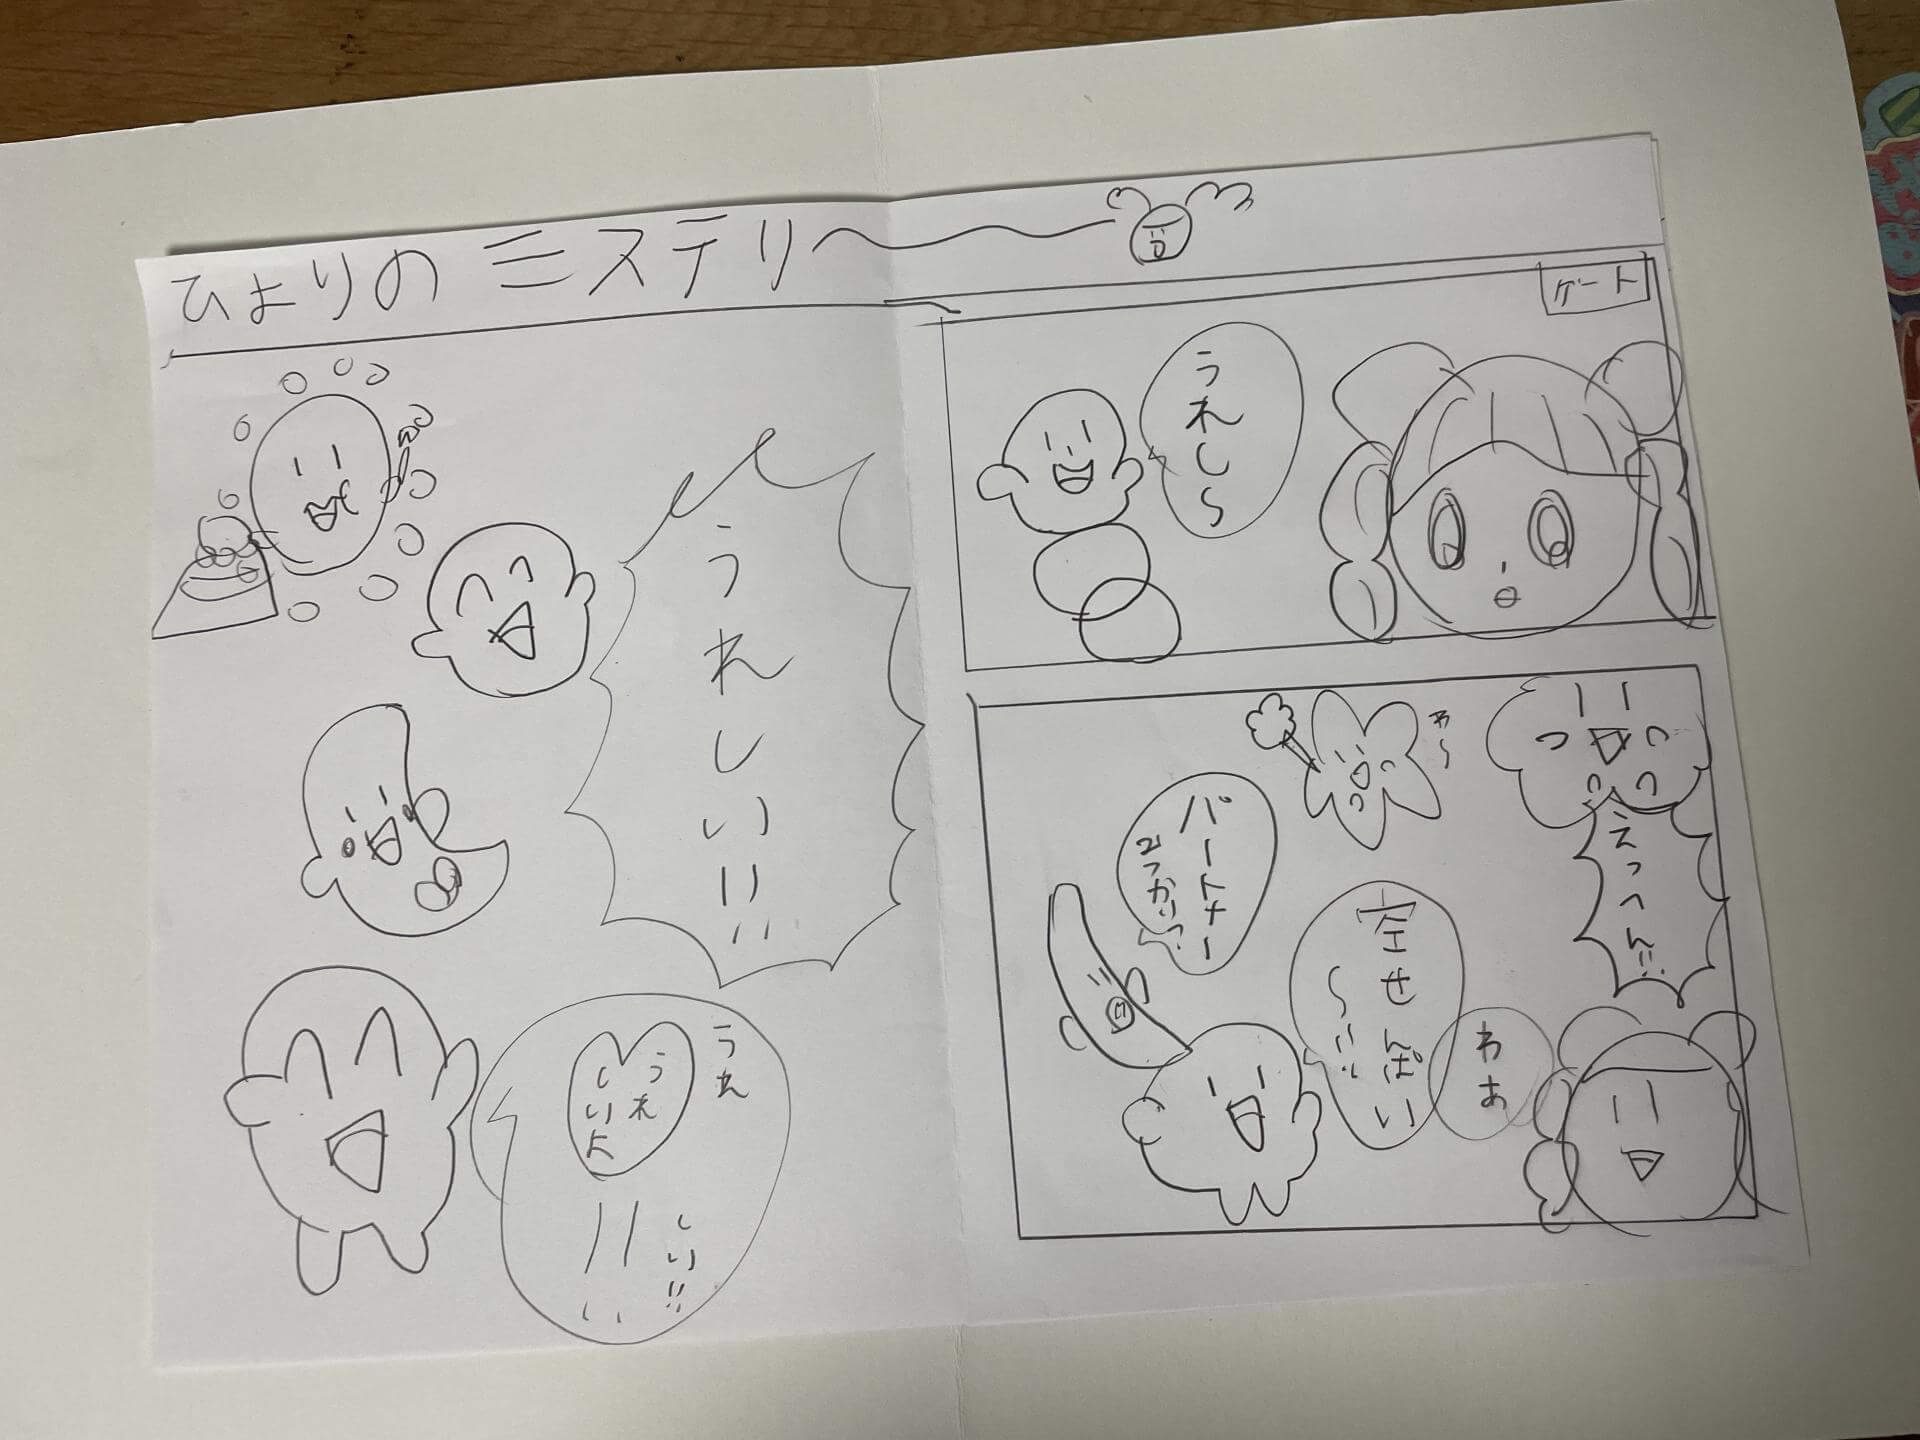 ひよりのミステリ〜
ゲート
うれし〜
えっへん!!
わ〜
パートナー
みつかりっ
空せんぱい
〜!!
わぁ
うれしい!!
うれ
しい!!
うれ
しいよ